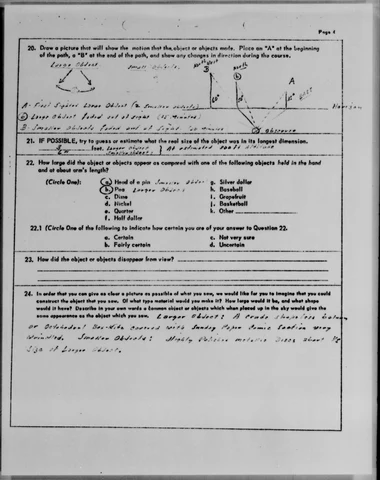 Page 4
20. Draw a picture that will show the motion that the object or objects made. Place an "A" at the beginning
of the path, a "B" at the end of the path, and show any changes in direction during the course.
Large Object Small Objects North West North West
B A
Horizon
A - First Sighted Large Object (2 Smaller objects)
Large Object faded out of sight (15 Minutes) Observer
B - Smaller Objects faded out of sight
21. IF POSSIBLE, try to guess or estimate what the real size of the object was in its longest dimension.
feet. Larger Object At estimated
22. How large did the object or objects appear as compared with one of the following objects held in the hand
and at about arm's length?
(Circle One): a. Head of a pin Smaller Object g. Silver dollar
b. Pea Larger Object h. Baseball
c. Dime i. Grapefruit
d. Nickel j. Basketball
e. Quarter k. Other
f. Half dollar
22.1 (Circle One of the following to indicate how certain you are of your answer to Question 22.
a. Certain c. Not very sure
b. Fairly certain d. Uncertain
23. How did the object or objects disappear from view?
24. In order that you can give as clear a picture as possible of what you saw, we would like for you to imagine that you could
construct the object that you saw. Of what type material would you make it? How large would it be, and what shape
would it have? Describe in your own words a common object or objects which when placed up in the sky would give the
same appearance as the object which you saw. Larger Object: A crude shapeless
or Octahedral Box-Kite covered with Sunday Paper Comic Section very
wrinkled. Smaller Objects: Highly Polished metallic Discs about
Size of Larger Object.